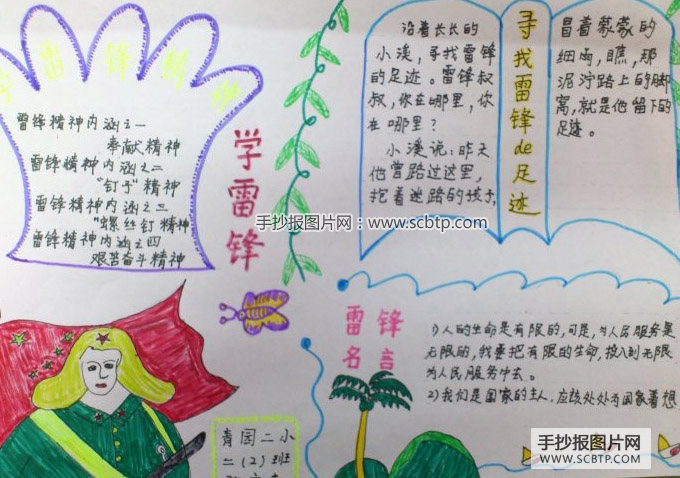 学雷锋精神
雷锋精神内涵之一
奉献精神
雷锋精神内涵之二
"钉子"精神
雷锋精神内涵之三
"螺丝钉精神
雷锋精神内涵之四
艰苦奋斗精神
学雷锋
沿着长长的
小溪，寻找雷锋
的足迹。雷锋叔
叔，你在哪里，你
在哪里？
小溪说：昨天
他曾路过这里，
抱着迷路的孩子，
寻找雷锋de足迹
冒着蒙蒙的
细雨，瞧，那
泥泞路上的脚
窝，就是他留下的
足迹。
手抄报图片网：www.scbtp.com
雷锋
名言
1)人的生命是有限的，可是，为人民服务是
无限的，我要把有限的生命，投入到无限
为人民服务中去。
2)我们是国家的主人，应该处处为国家着想
青园二小
二(2)班
手抄报图片网
SCBTP.COM